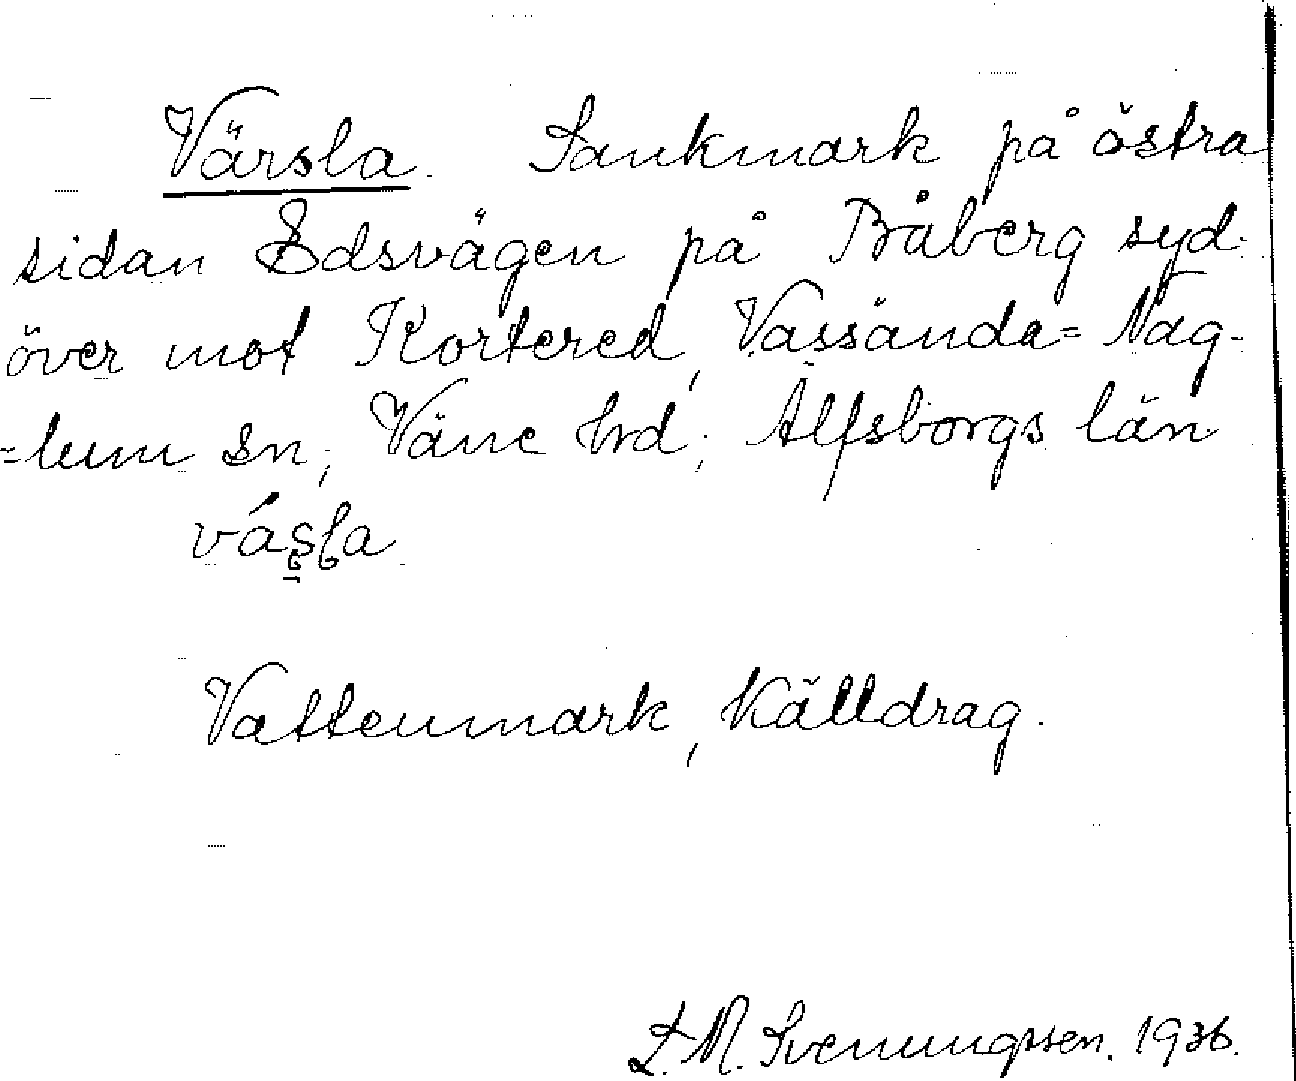 Värsla. Sankmark på östra
sidan Edsvägen på Båberg syd-
över mot Kortered, Vassända= Nag-
=lum sn, Väne hrd, Älfsborgs län
vás̱la
Vattenmark, Källdrag.
L. M. Svenungssen. 1936.